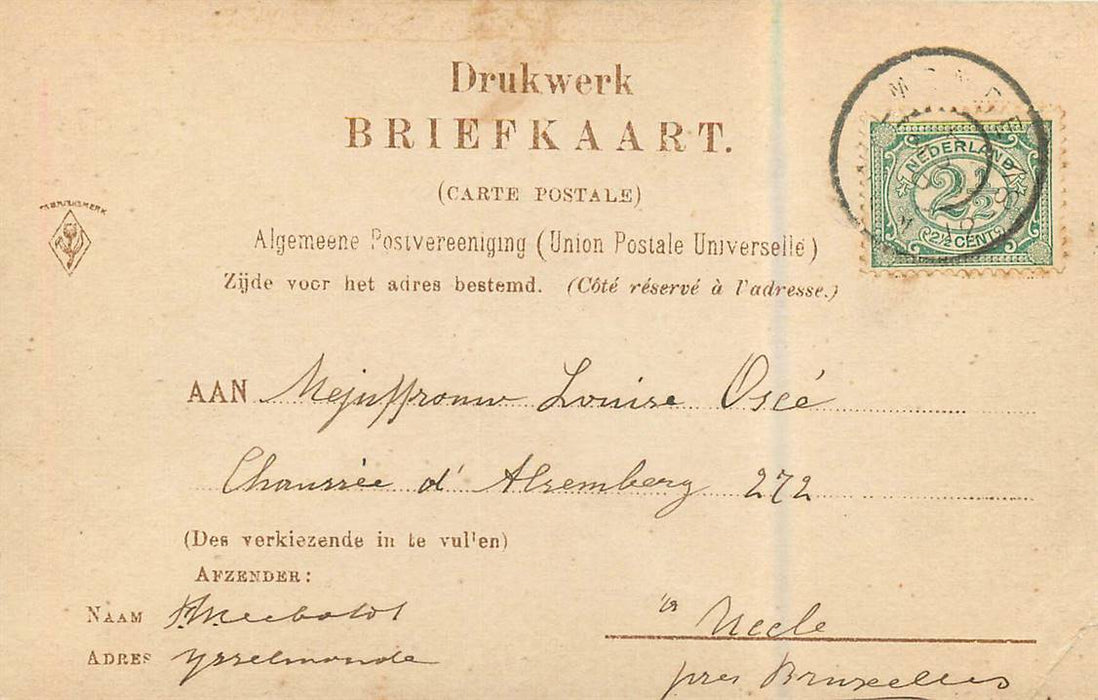 Drukwerk
BRIEFKAART.
(CARTE POSTALE)
Algemeene Postvereeniging (Union Postale Universelle)
Zijde voor het adres bestemd. (Côté réservé à l'adresse.)
FABRIEKSMERK
NEDERLAND
2½
2½ CENT
AAN Mejuffrouw Louise Osée
Chaussée d'Alsemberg 272
(Des verkiezende in te vullen)
AFZENDER:
NAAM
ADRES Ysselmonde
Uccle
près Bruxelles